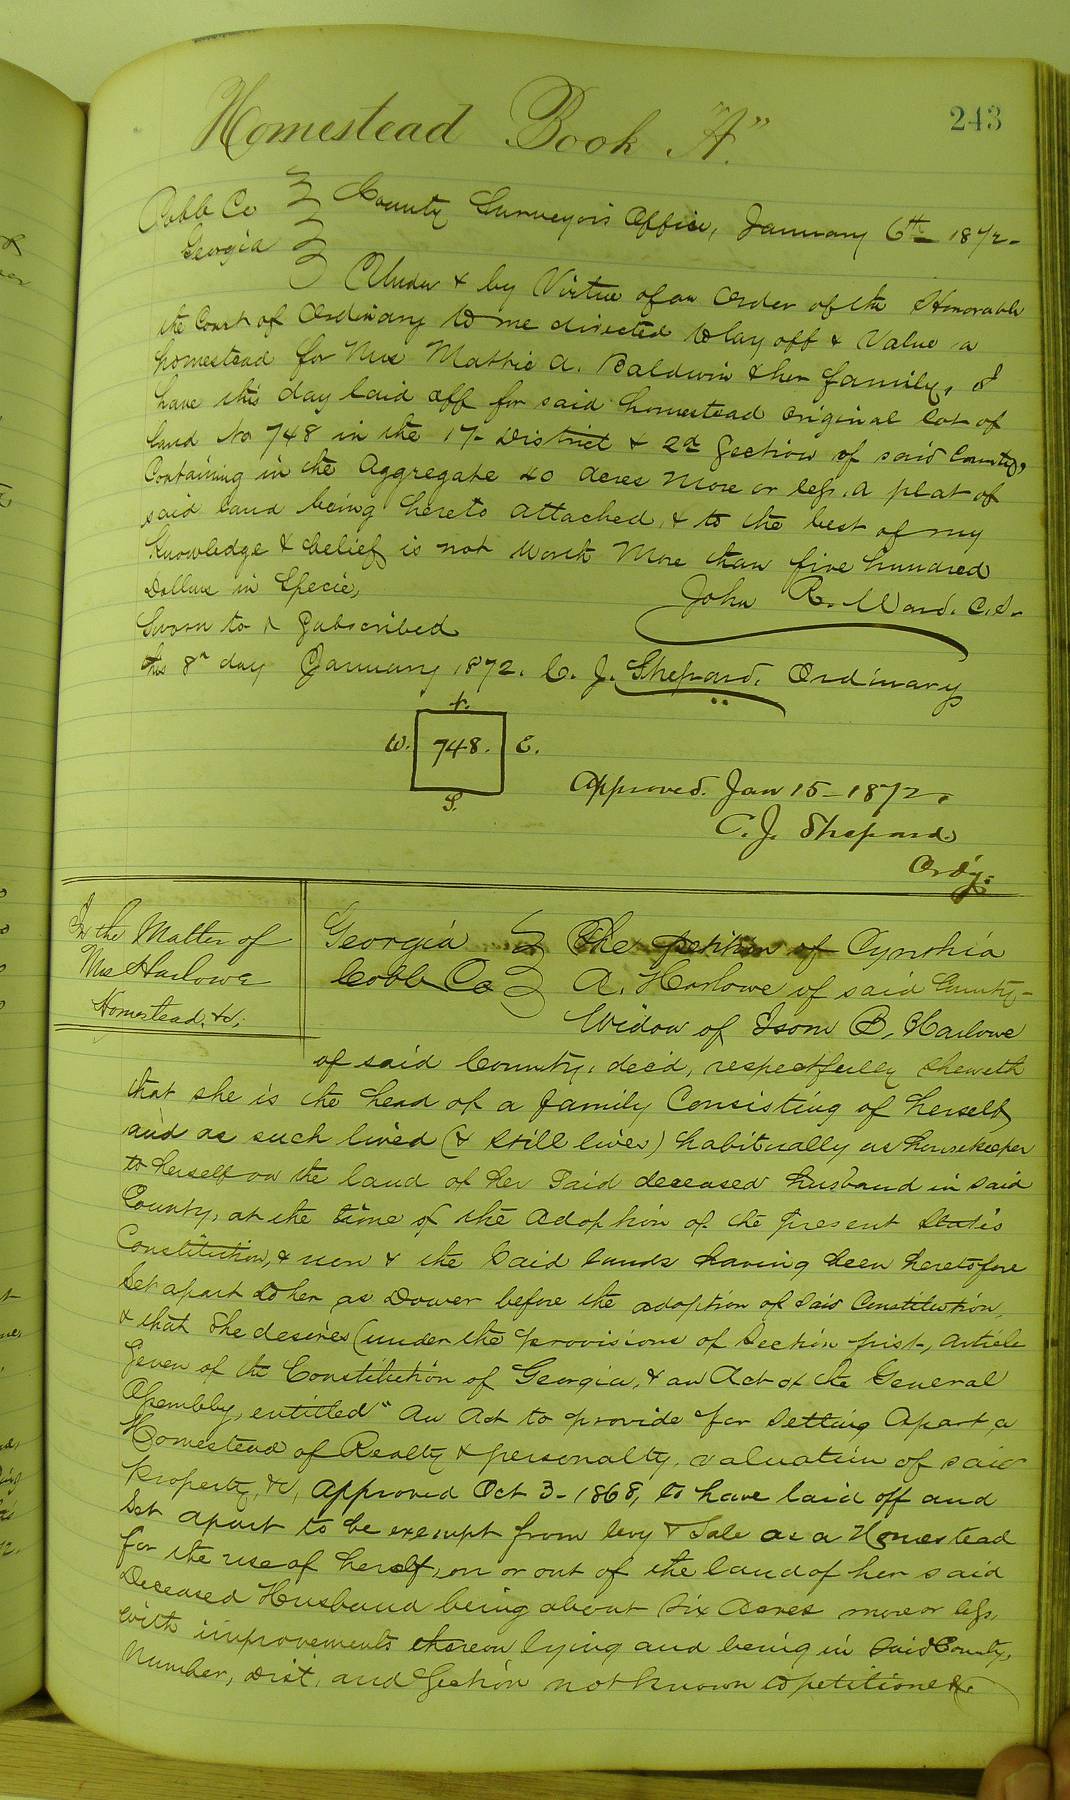 243
Homestead Book "A"
Cobb Co County Surveyor's Office, January 6th 1872.
Georgia
Under & by Virtue of an order of the Honorable
the Court of Ordinary to me directed to lay off & Value a
homestead for Mrs Mattie A. Baldwin & her family, I
have this day laid off for said homestead original lot of
land No 748 in the 17- District & 2d Section of said County,
Containing in the Aggregate 40 acres more or less. a plat of
said land being hereto attached, & to the best of my
Knowledge & belief is not worth More than five hundred
Dollars in Specie,
John R. Ward. C.S.
Sworn to & Subscribed
this 8th day January 1872. C. J. Shepard. Ordinary
N.
W. 748. E.
S.
Approved. Jan 15- 1872.
C. J. Shepard
Ordy.
In the Matter of
Mrs Harlowe
Homestead, &c,
Georgia The petition of Cynthia
Cobb Co A. Harlowe of said County-
Widow of Isom B. Harlowe
of said County, dec'd, respectfully sheweth
that she is the head of a family Consisting of herself
and as such lived (& still lives) habitually as housekeeper
to herself on the land of her said deceased husband in said
County, at the time of the adoption of the present State's
Constitution, & now & the said lands having been heretofore
set apart to her as Dower before the adoption of said Constitution,
& that she desires (under the provisions of Section first, article
Seven of the Constitution of Georgia, & an Act of the General
Assembly, entitled "An Act to provide for Setting Apart a
Homestead of Realty & personalty, valuation of said
property, &c, approved Oct 3- 1868, to have laid off and
Set apart to be exempt from levy & Sale as a Homestead
for the use of herself, on or out of the land of her said
Deceased Husband being about six Acres more or less,
with improvements thereon lying and being in said County,
Number, Dist, and Section not known to petitioner.